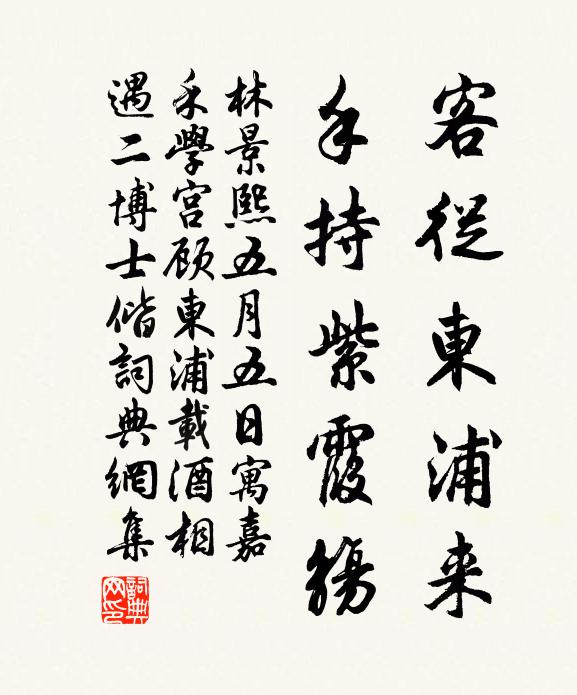 客從東浦来
手持紫霞觴
林景熙五月五日寓嘉
禾學宫顾東浦載酒相
遇二博士偕詞典網集
詞典网印